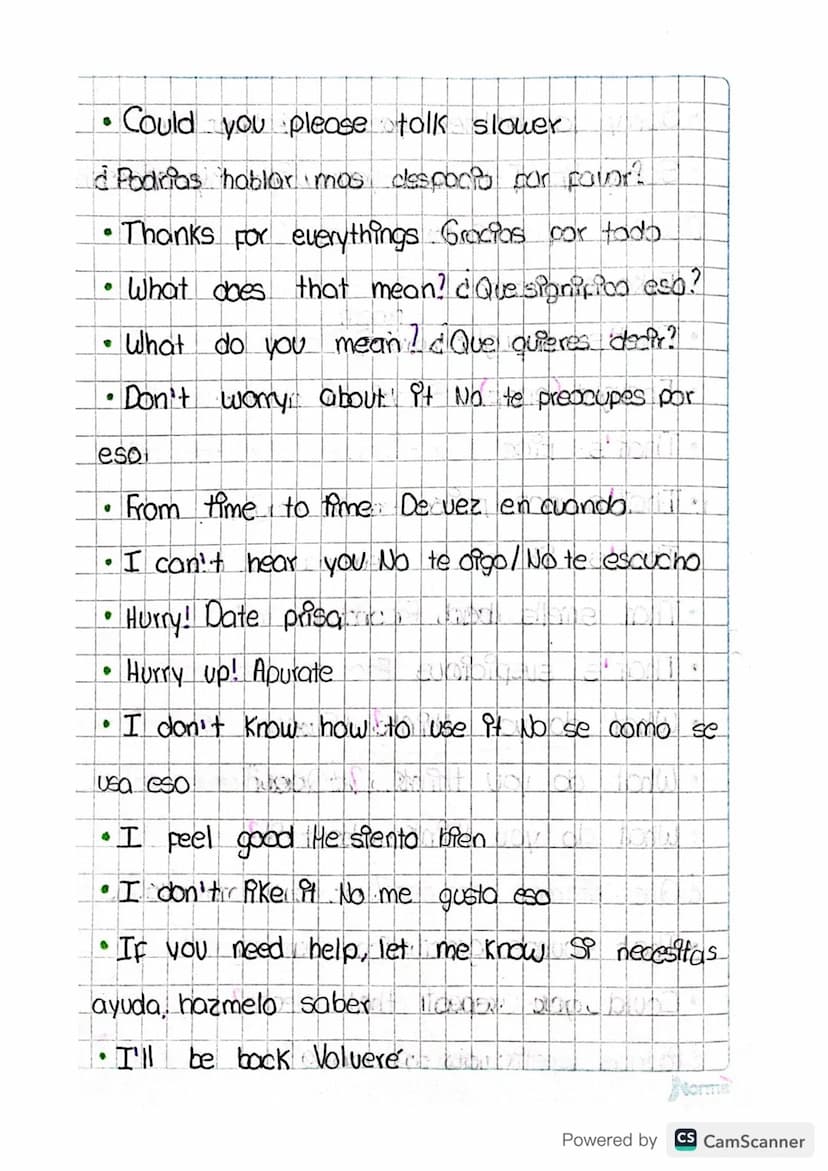 • Could you please talk slower
¿Podrías hablar mas despacio por favor?
• Thanks for everythings Gracias por todo
• What does that mean? ¿Que significa eso?
• What do you mean? ¿Que quieres decir?
• Don't worry about it No te preocupes por
eso
• From time to time De vez en cuando
• I can't hear you No te oigo/No te escucho
• Hurry! Date prisa
• Hurry up! Apurate
• I don't know how to use it No se como se
usa eso
• I feel good Me siento bien
• I don't like it No me gusta eso
• If you need help, let me know Si necesitas
ayuda, hazmelo saber
• I'll be back Volveré
Norma
Powered by CS CamScanner